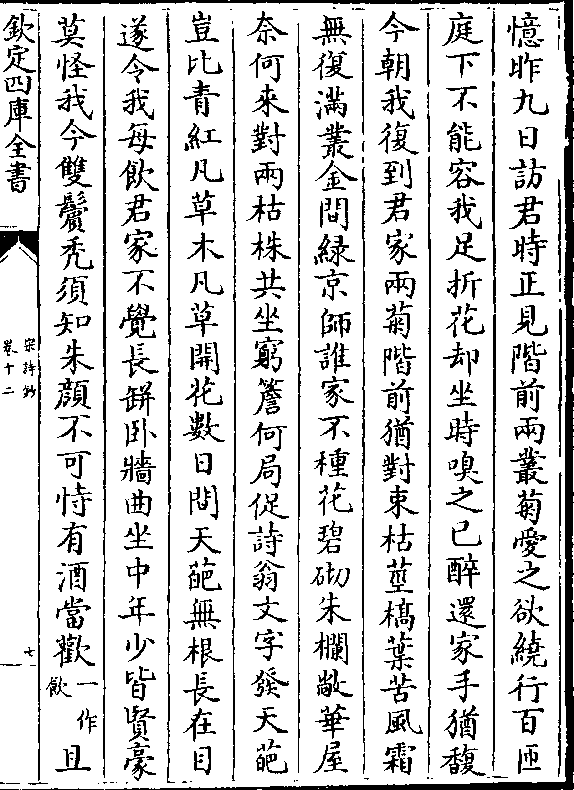 憶昨九日訪君時正見階前兩叢菊愛之欲繞行百匝
庭下不能容我足折花却坐時嗅之已醉還家手猶馥
今朝我復到君家兩菊階前猶對束枯莖槁葉苦風霜
無復滿叢金間緑京師誰家不種花碧砌朱欄敞華屋
奈何來對兩枯株共坐窮簷何局促詩翁文字發天葩
豈比青紅凡草木凡草開花數日間天葩無根長在目
遂令我每飲君家不覺長缾卧牆曲坐中年少皆賢豪
莫怪我今雙鬢禿須知朱顔不可恃有酒當歡一作飲且
欽定四庫全書
宋詩鈔
卷十二
七